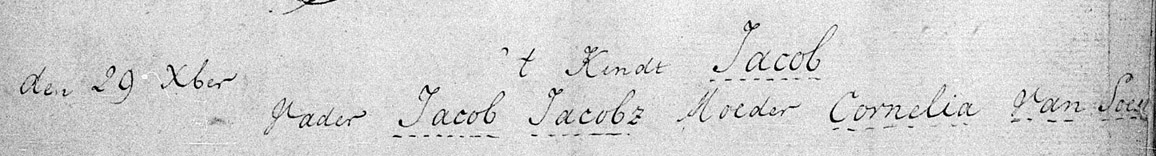 den 29 Xber 't Kindt Jacob
Vader Jacob Jacobz Moeder Cornelia Van Soest